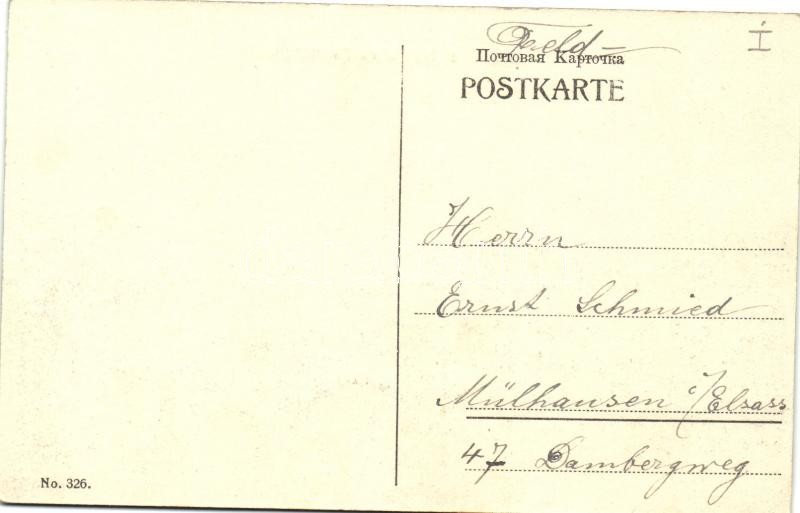 Feld-
I
Почтовая Карточка
POSTKARTE
Herrn
Ernst Schmied
Mülhausen i/Elsass
47 Dambergweg
No. 326.